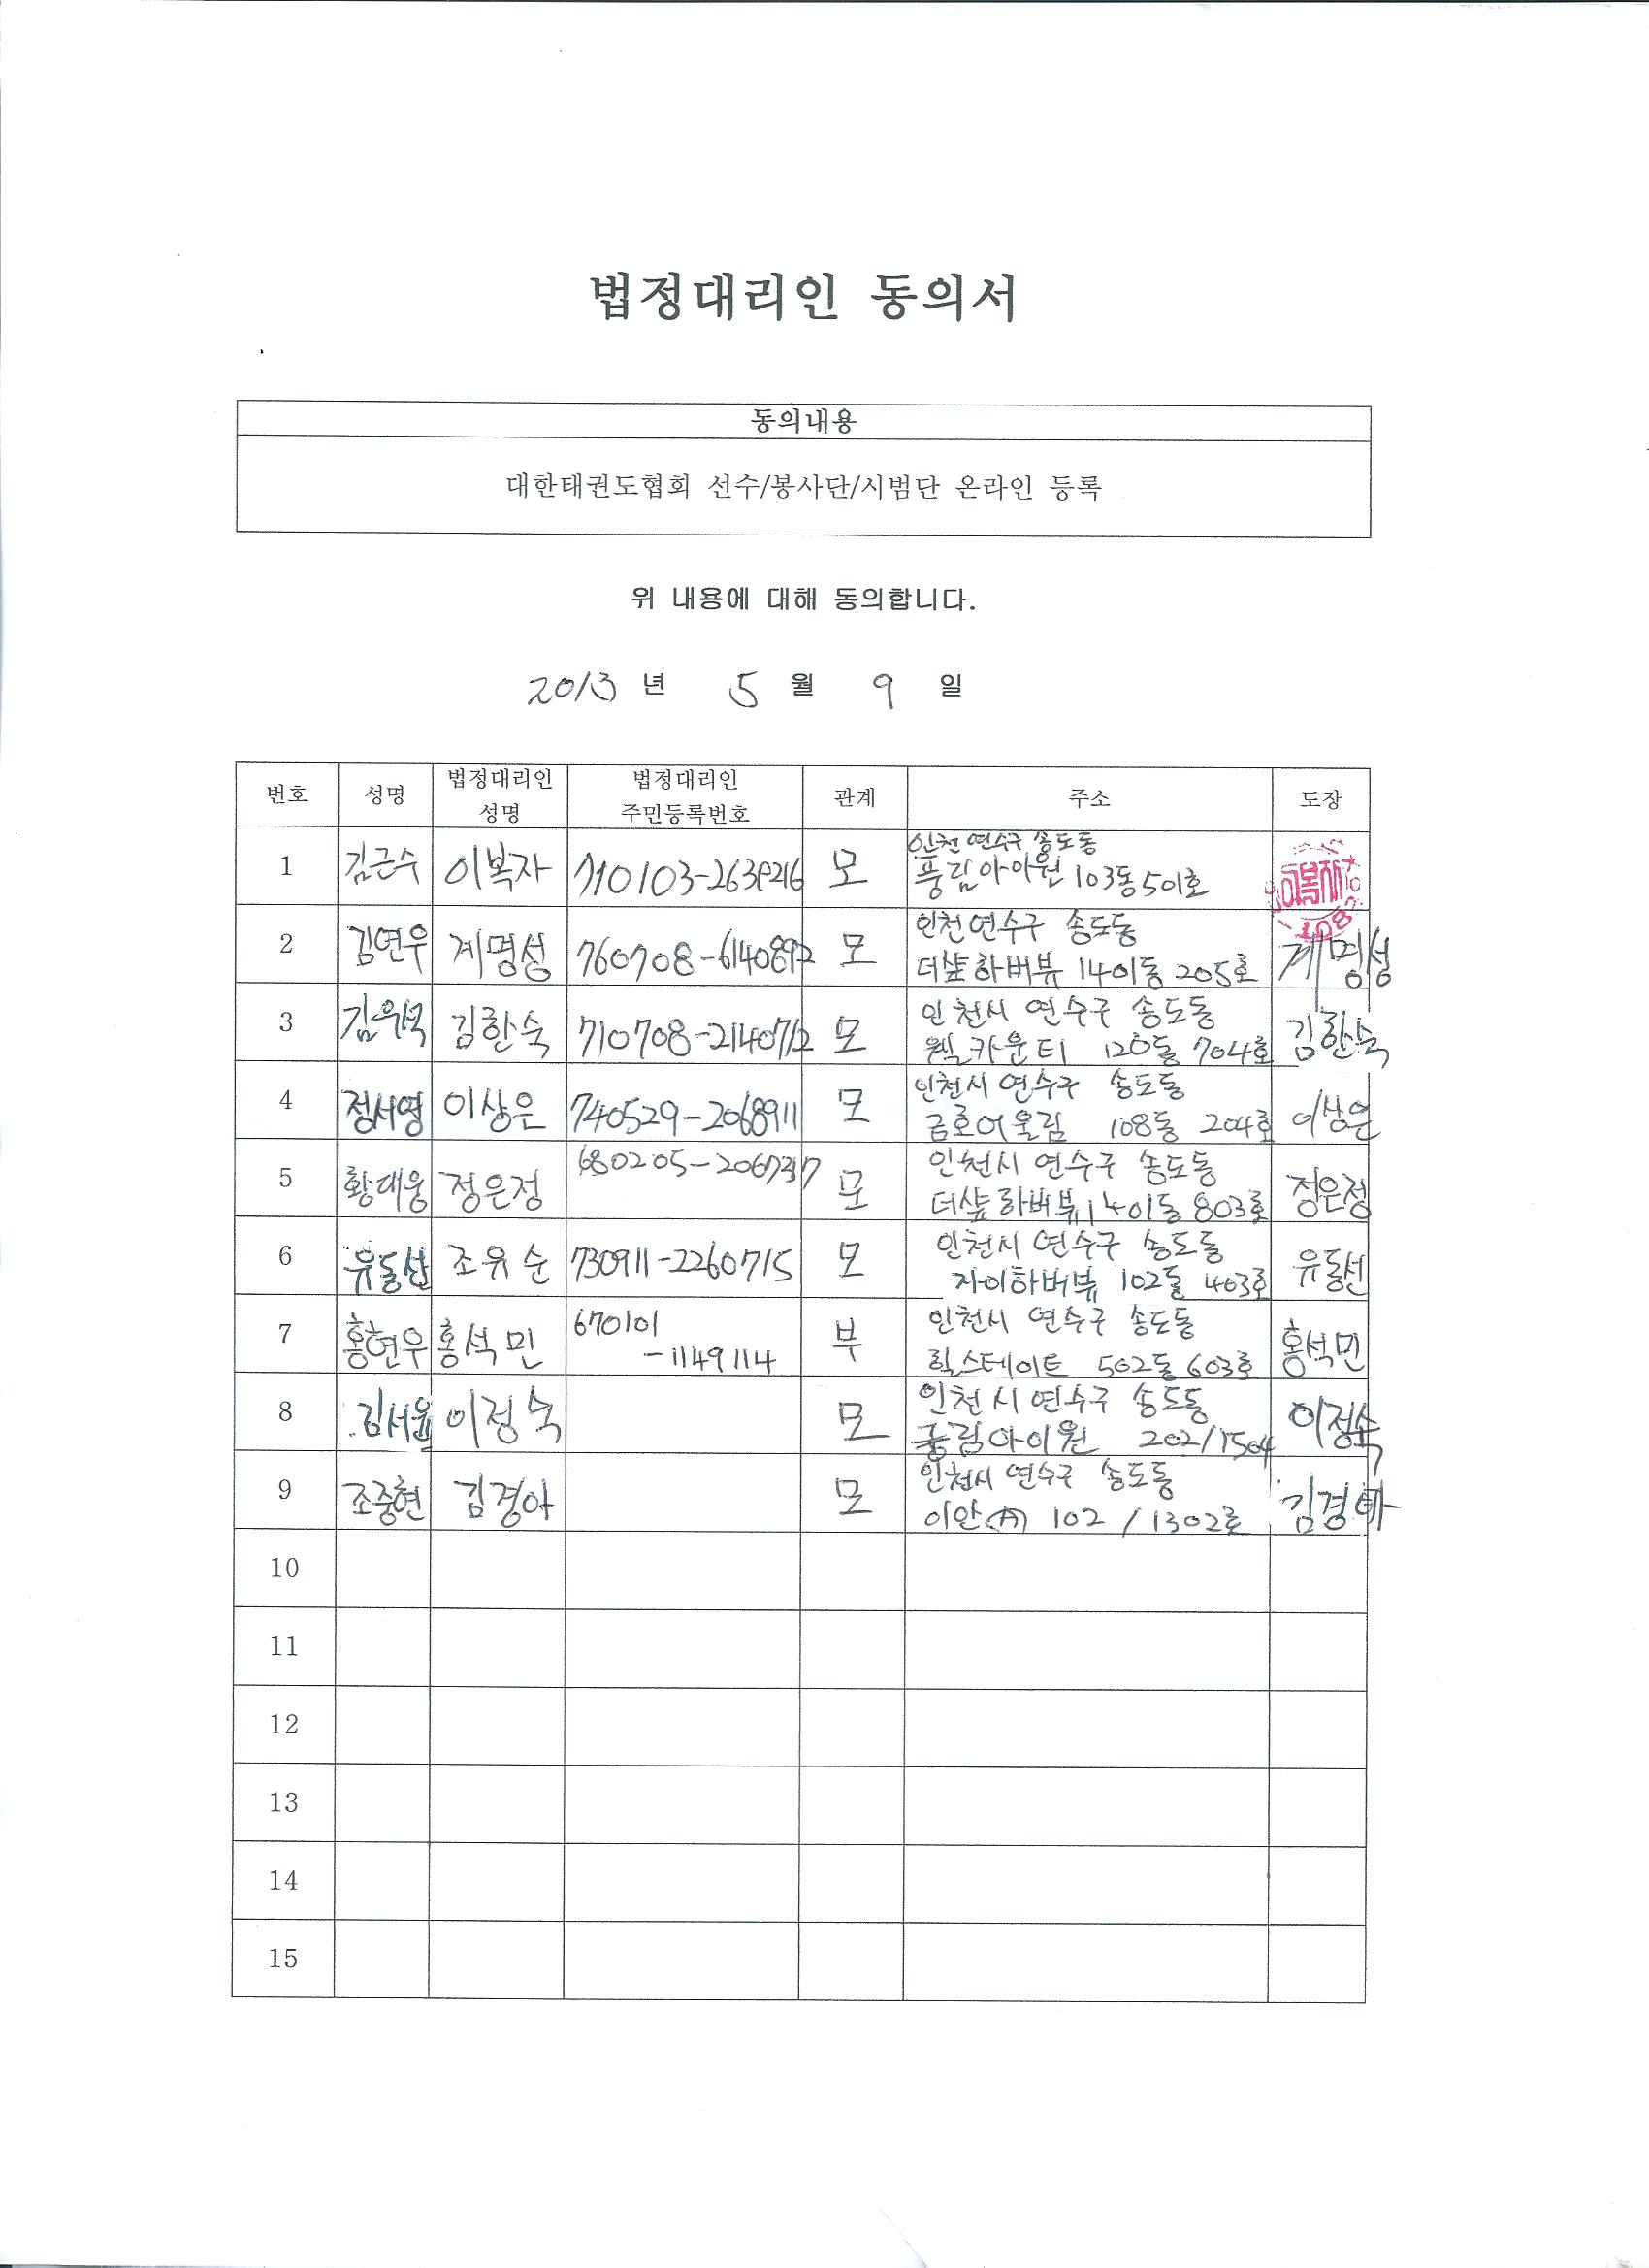 법정대리인 동의서
동의내용
대한태권도협회 선수/봉사단/시범단 온라인 등록
위 내용에 대해 동의합니다.
2013 년 5 월 9 일
번호 성명 법정대리인 성명 법정대리인 주민등록번호 관계 주소 도장
인천 연수구 송도동
1 김근수 이복자 모 풍림아이원 103동 501호
인천 연수구 송도동
2 김연우 계명성 모 더샾하버뷰 1401동 205호 계명성
인천시 연수구 송도동
3 김한숙 710708-2140712 모 웰카운티 704호 김한숙
인천시 연수구 송도동
4 정서영 이상은 740529-2068911 모 금호어울림 108동 204호 이상은
인천시 연수구 송도동
5 황대웅 정은정 모 더샾하버뷰 1401동 803호 정은정
인천시 연수구 송도동
6 유동선 조유순 730911-2260715 모 자이하버뷰 102동 403호 유동선
670101 인천시 연수구 송도동
7 홍현우 홍석민 -1149114 부 힐스테이트 502동 603호 홍석민
인천시 연수구 송도동
8 김서윤 이정숙 모 풍림아이원 202/1504 이정숙
인천시 연수구 송도동
9 조중현 김경아 모 이안(A) 102 / 1302호 김경아
10
11
12
13
14
15